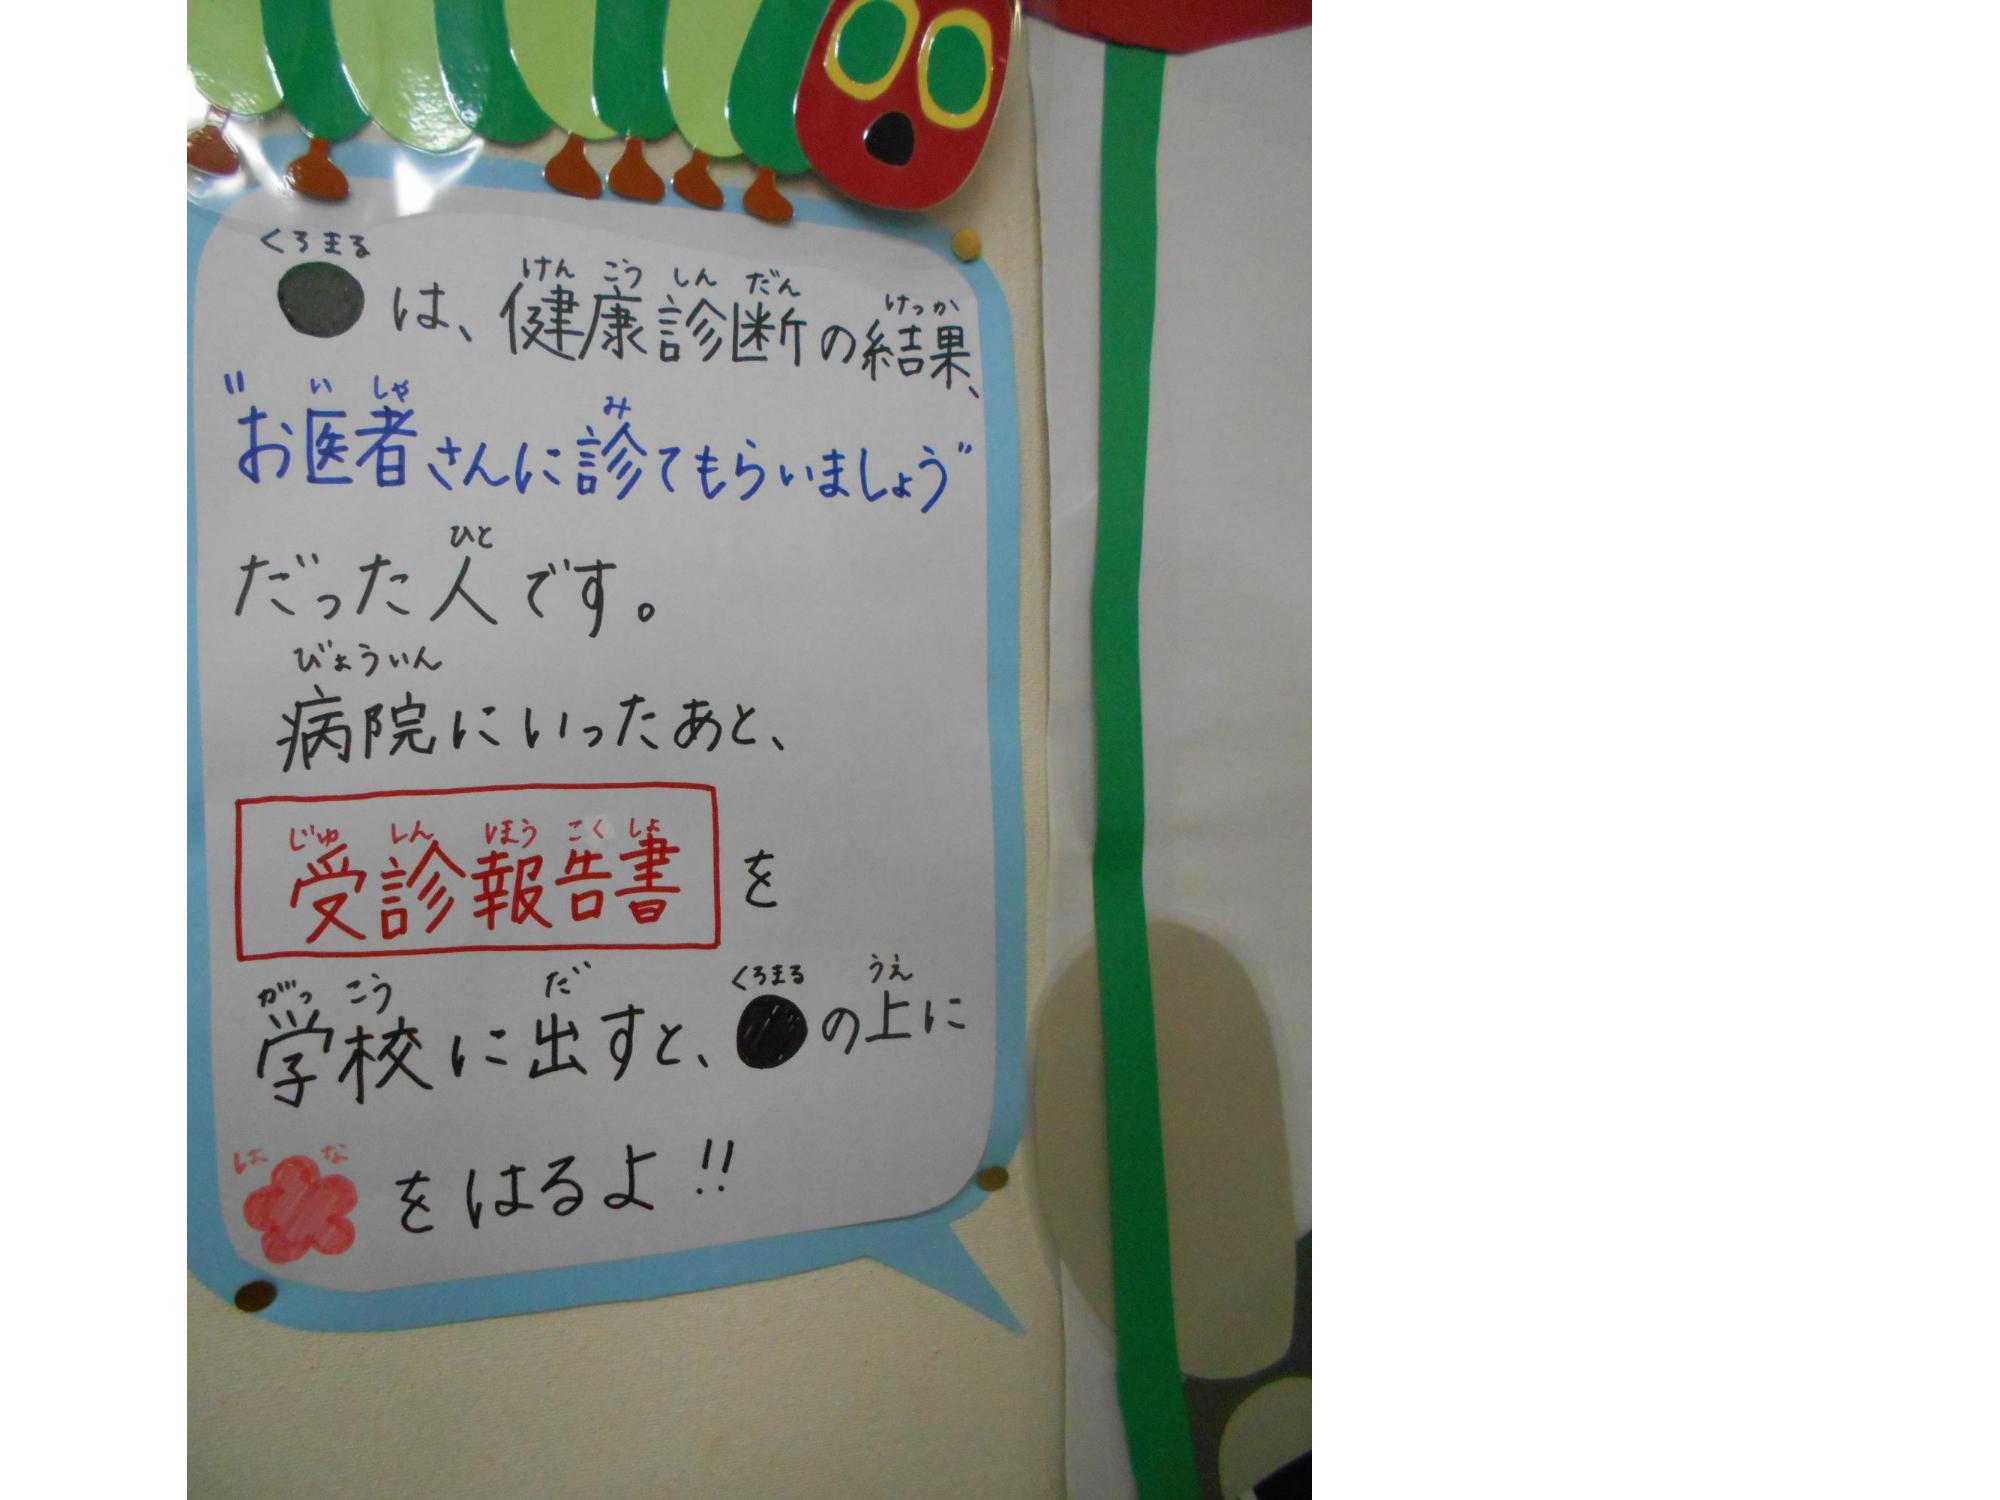 くろまる けんこうしんだん けっか
●は、健康診断の結果、
いしゃ み
"お医者さんに診てもらいましょう"
ひと
だった人です。
びょういん
病院にいったあと、
じゅしんほうこくしょ
受診報告書を
がっこう だ くろまる うえ
学校に出すと、●の上に
はな
をはるよ!!